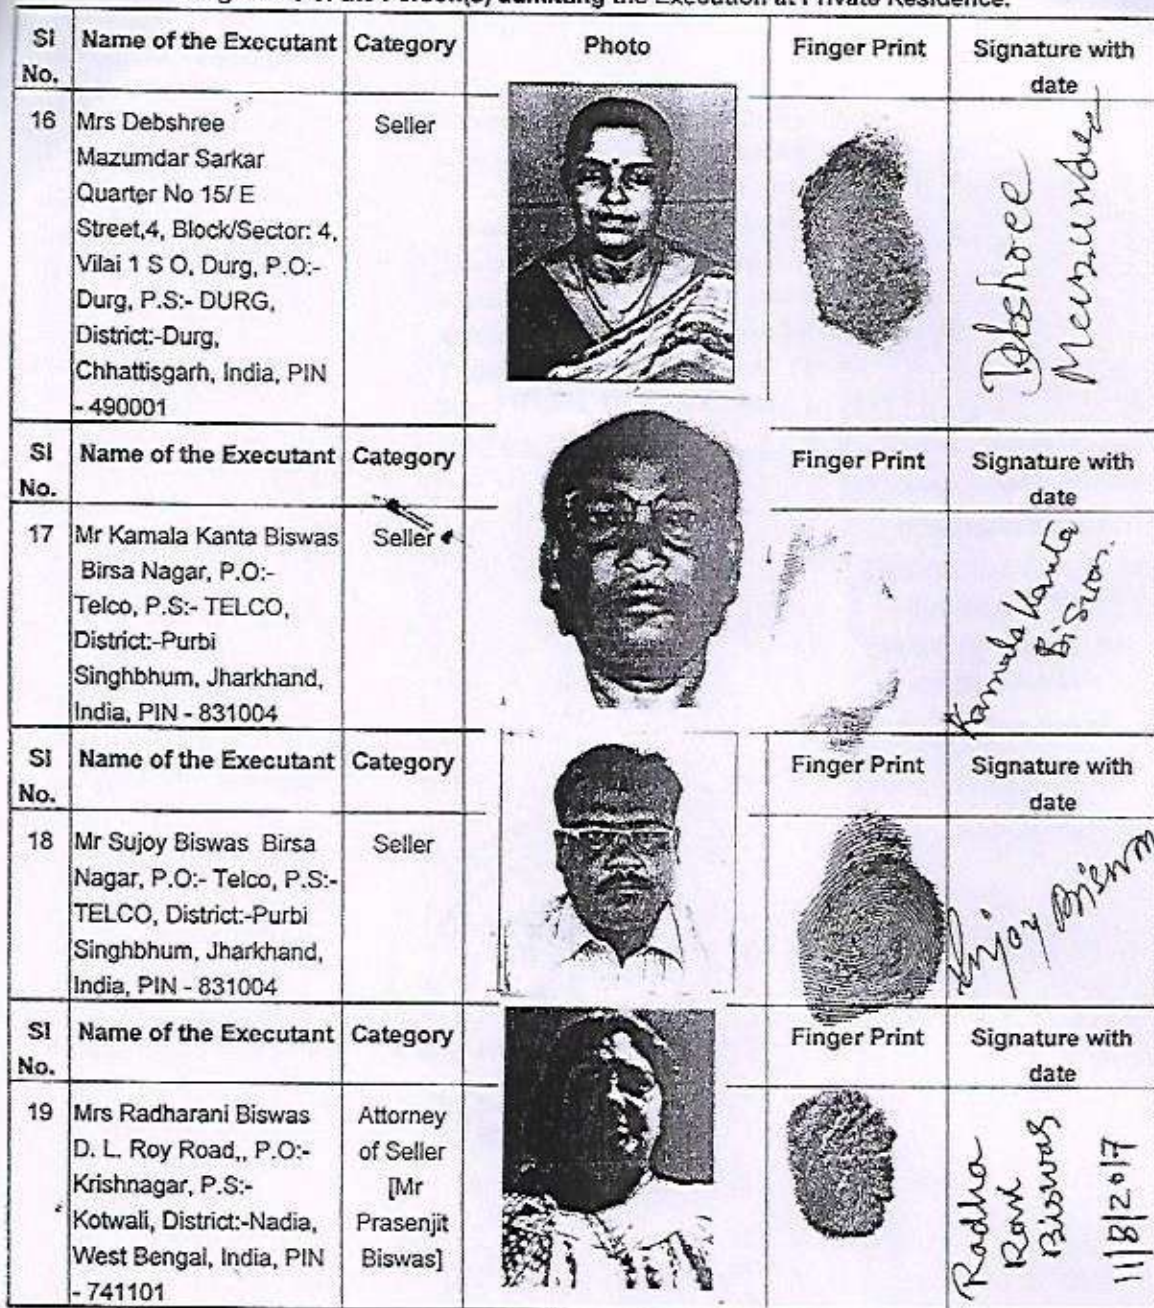 the Person(s) admitting the Execution at Private Residence.
Sl No. Name of the Executant Category Photo Finger Print Signature with date
16 Mrs Debshree Seller
Mazumdar Sarkar
Quarter No 15/ E
Street,4, Block/Sector: 4,
Vilai 1 S O, Durg, P.O:-
Durg, P.S:- DURG,
District:-Durg,
Chhattisgarh, India, PIN
- 490001
Debshree
Sl No. Name of the Executant Category Finger Print Signature with date
17 Mr Kamala Kanta Biswas Seller
Birsa Nagar, P.O:-
Telco, P.S:- TELCO,
District:-Purbi
Singhbhum, Jharkhand,
India, PIN - 831004
Kamala Kanta
Biswas.
Sl No. Name of the Executant Category Finger Print Signature with date
18 Mr Sujoy Biswas Birsa Seller
Nagar, P.O:- Telco, P.S:-
TELCO, District:-Purbi
Singhbhum, Jharkhand,
India, PIN - 831004
Sujoy Biswas
Sl No. Name of the Executant Category Finger Print Signature with date
19 Mrs Radharani Biswas Attorney
D. L. Roy Road,, P.O:- of Seller
Krishnagar, P.S:- [Mr
Kotwali, District:-Nadia, Prasenjit
West Bengal, India, PIN Biswas]
- 741101
Radha
Rani
Biswas
11/8/2017